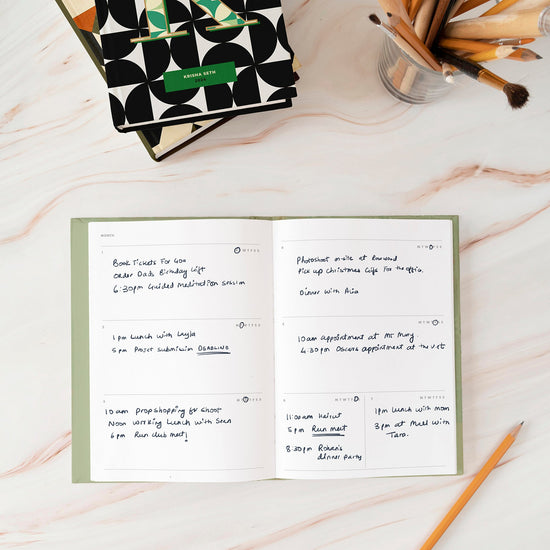 KRISHA SETH
MONTH
1
M T W T F S S
Book Tickets For Goa
Order Dads Birthday Gift
6:30pm Guided Meditation Session
2
M T W T F S S
1 pm Lunch with Layla
5 pm Project submission DEADLINE
3
M T W T F S S
10 am Prop shopping for shoot
Noon Working Lunch with Sean
6 pm Run club meet!
4
M T W T F S S
Photoshoot on-site at
Pick up Christmas Gifs For the office.
Dinner with Mia
5
M T W T F S S
10am appointment at
4:30 pm Oscars appointment at the vet
6
M T W T F S S
11:00am Haircut
5 pm Run meet
8:30pm Rohan's
dinner party
7
1pm Lunch with mom
3pm at Mall with
Tara.